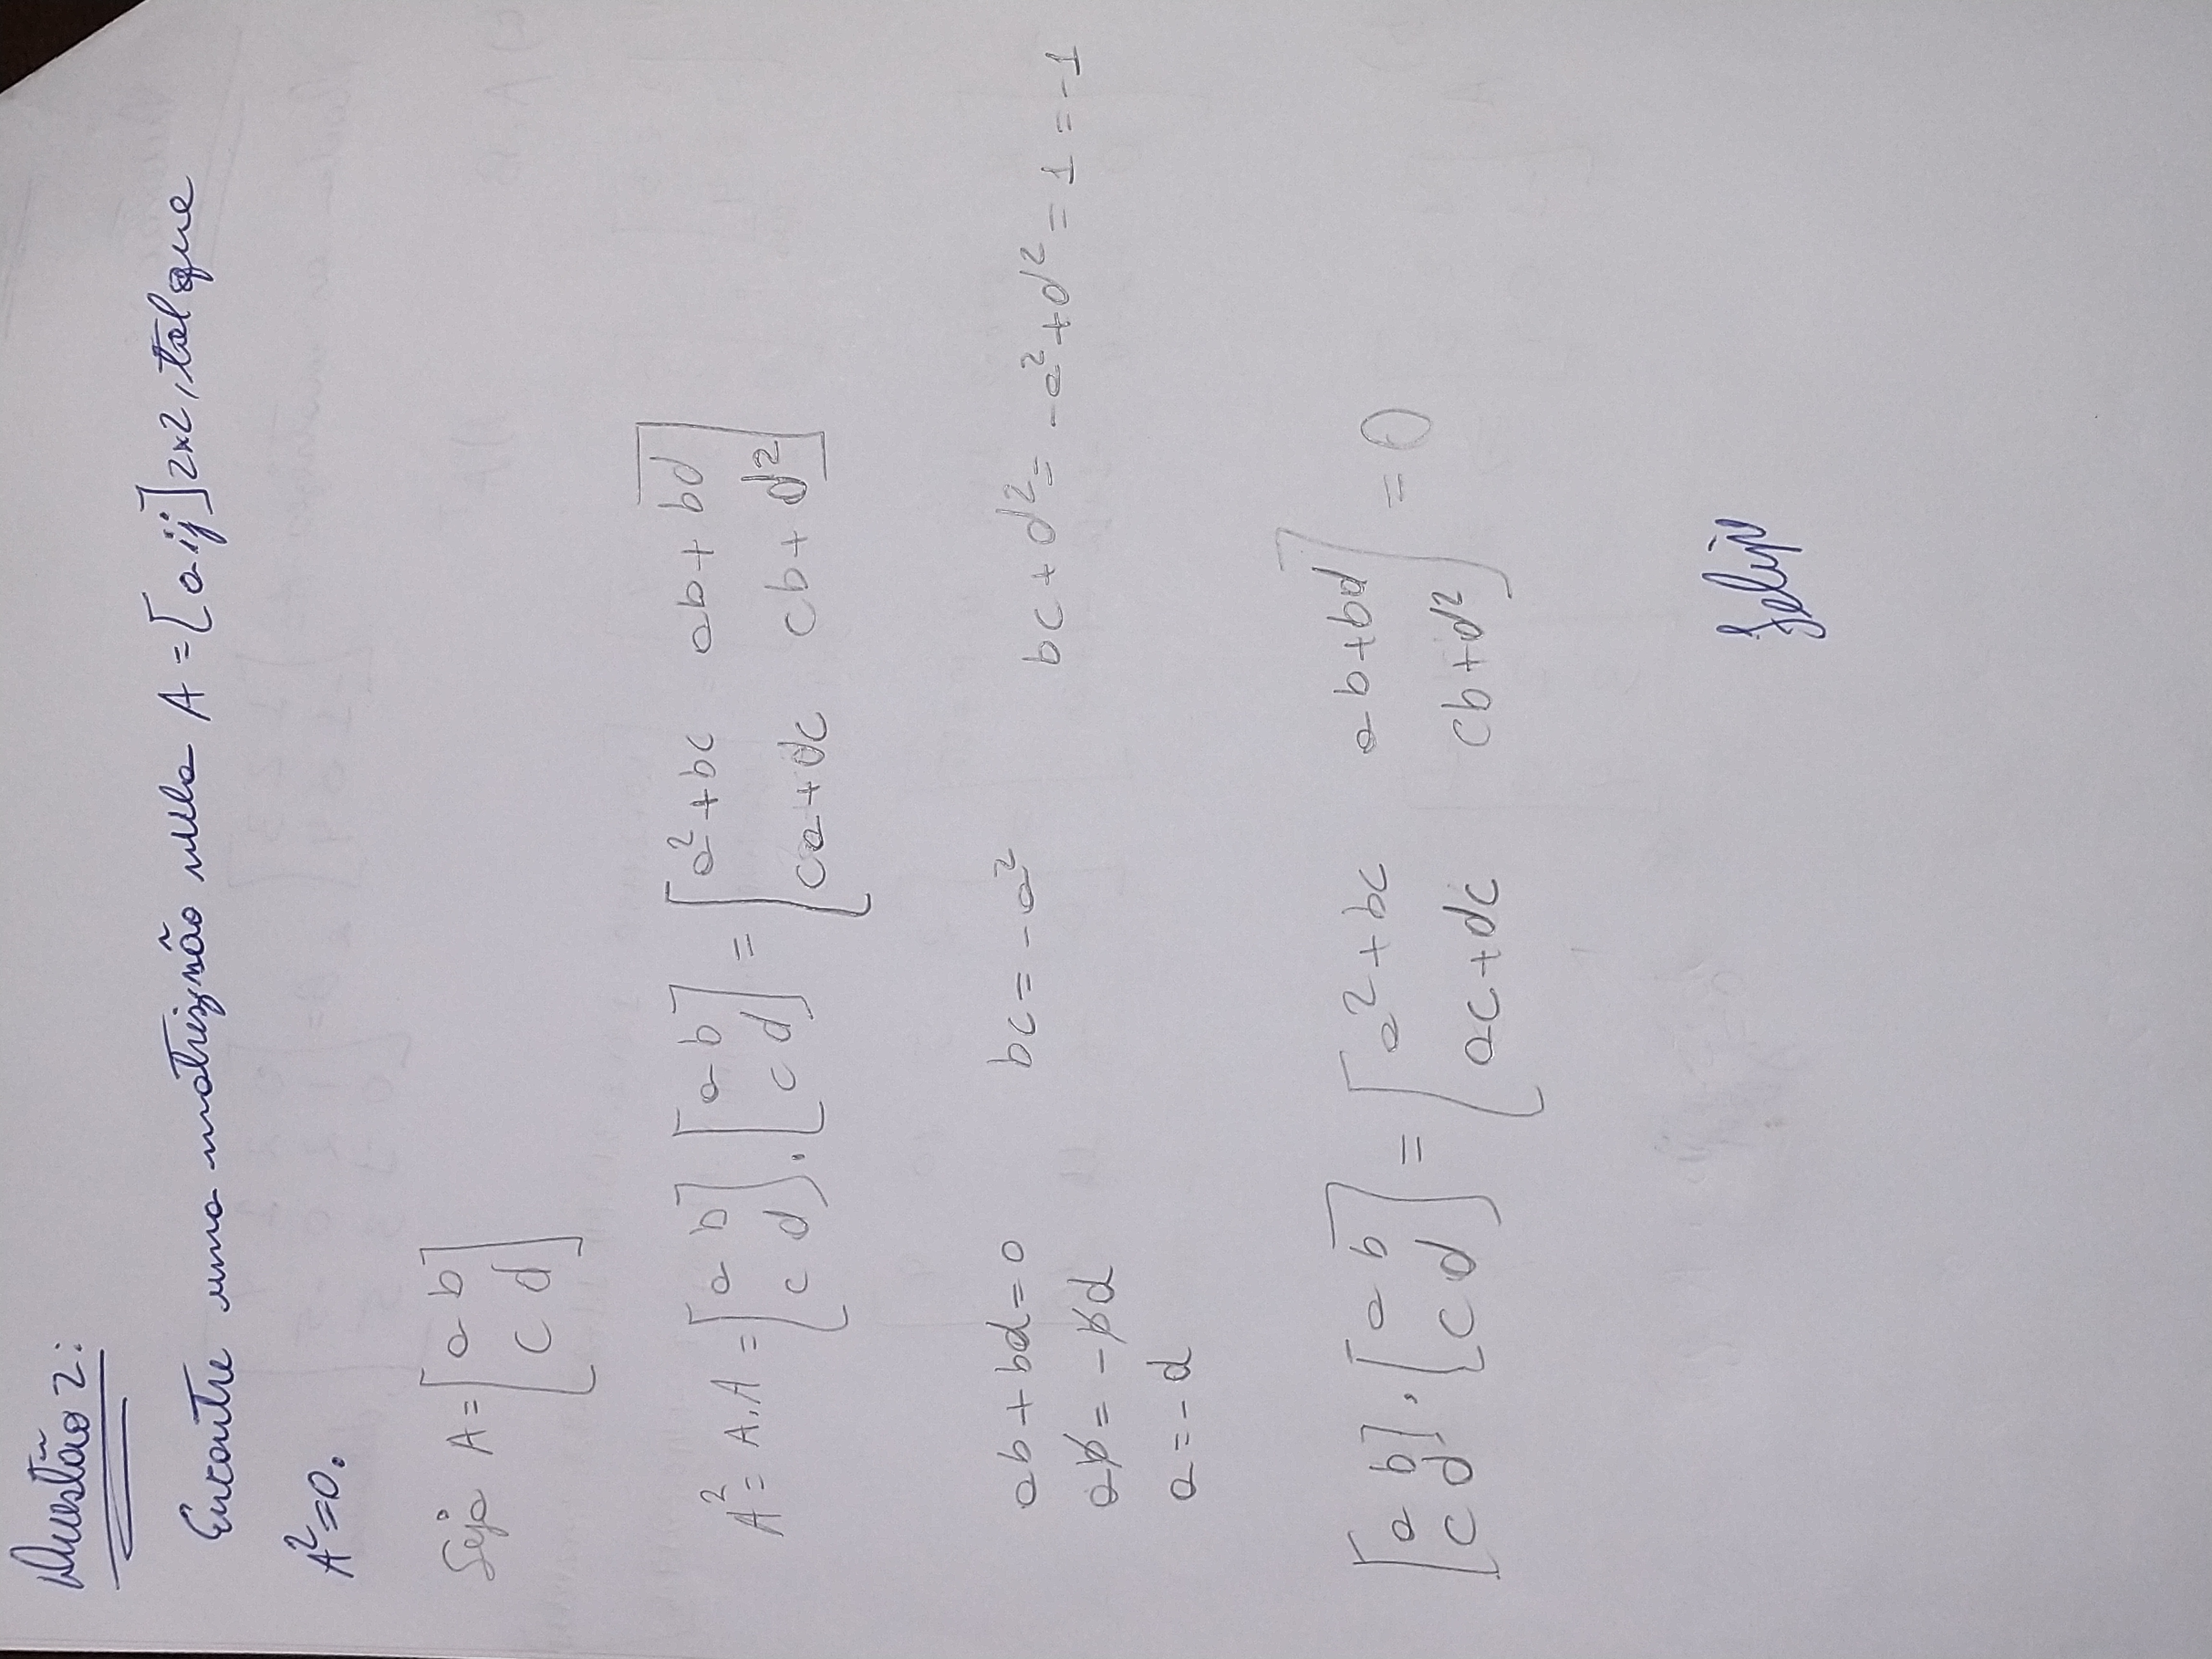 Questão 2:
Encontre uma matriz não nula A = [a ij] 2x2, tal que
A² = 0.
Seja A = [a b
c d]
A² = A.A = [a b
c d] . [a b
c d] = [a² + bc ab + bd
ca + dc cb + d²]
ab + bd = 0 bc = -a² bc + d² = -a² + d² = 1 = -1
ab = -bd
a = -d
[a b
c d] . [a b
c d] = [a² + bc ab + bd
ac + dc cb + d²] = 0
Felipe